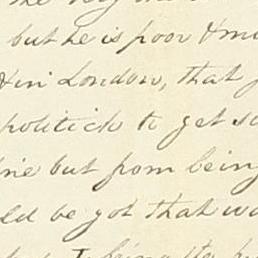 the very
but he is poor & mu
& in London, that
politick to get so
ine but from being
ld be got that wa